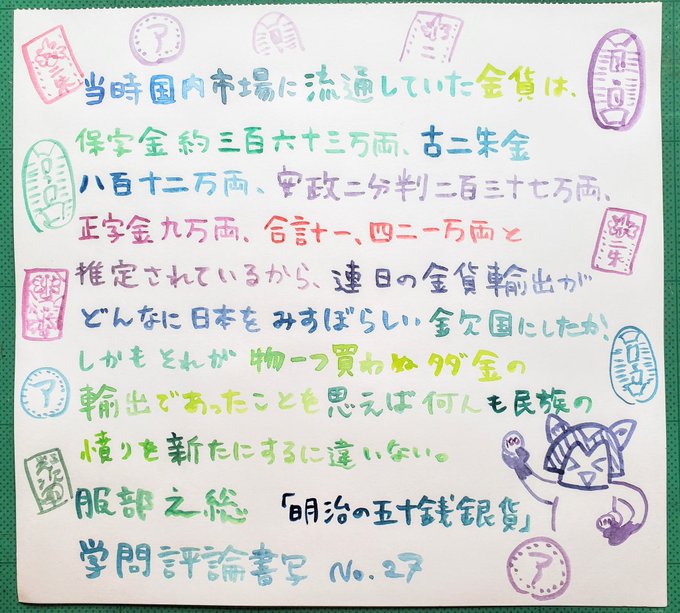 当時国内市場に流通していた金貨は、
保字金約三百六十三万両、古二朱金
八百十二万両、安政二分判二百三十七万両、
正字金九万両、合計十一、四二一万両と
推定されているから、連日の金貨輸出が
どんなに日本をみすぼらしい金欠国にしたか、
しかもそれが物一つ買わぬタダ金の
輸出であったことを思えば何人も民族の
憤りを新たにするに違いない。
服部之総 「明治の五十銭銀貨」
学問評論書写 No.27
ア
二朱
ア
二朱
ア
100
100